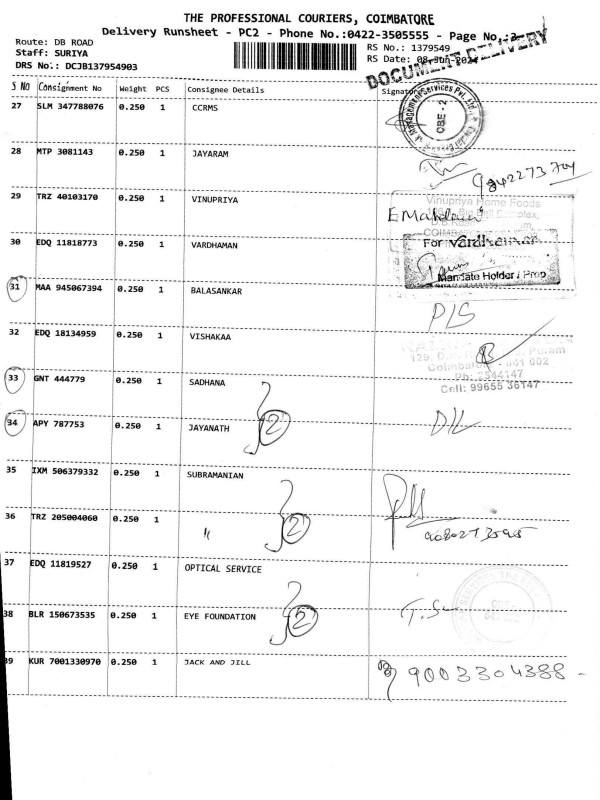 THE PROFESSIONAL COURIERS, COIMBATORE
Delivery Runsheet - PC2 - Phone No.:0422-3505555 - Page No.
Route: DB ROAD
RS No.: 1379549
Staff: SURIYA
RS Date: 08-Jun-2024
DRS No.: DCJB137954903
DOCUMENT DELIVERY
S No Consignment No Weight PCS Consignee Details Signature
27 SLM 347788076 0.250 1 CCRMS
CBE - 2
28 MTP 3081143 0.250 1 JAYARAM
29 TRZ 40103170 0.250 1 VINUPRIYA
Vinupriya Home Foods
30 EDQ 11818773 0.250 1 VARDHAMAN
For Vardhaman
Mandate Holder / Prop
31 MAA 945067394 0.250 1 BALASANKAR
P/S
32 EDQ 18134959 0.250 1 VISHAKAA
Coimbatore - 641 002
Ph: 2544147
Cell: 99655 36147
33 GNT 444779 0.250 1 SADHANA
34 APY 787753 0.250 1 JAYANATH
2
D/L
35 IXM 506379332 0.250 1 SUBRAMANIAN
36 TRZ 205004060 0.250 1 〃
2
37 EDQ 11819527 0.250 1 OPTICAL SERVICE
38 BLR 150673535 0.250 1 EYE FOUNDATION
2
39 KUR 7001330970 0.250 1 JACK AND JILL
9003304388